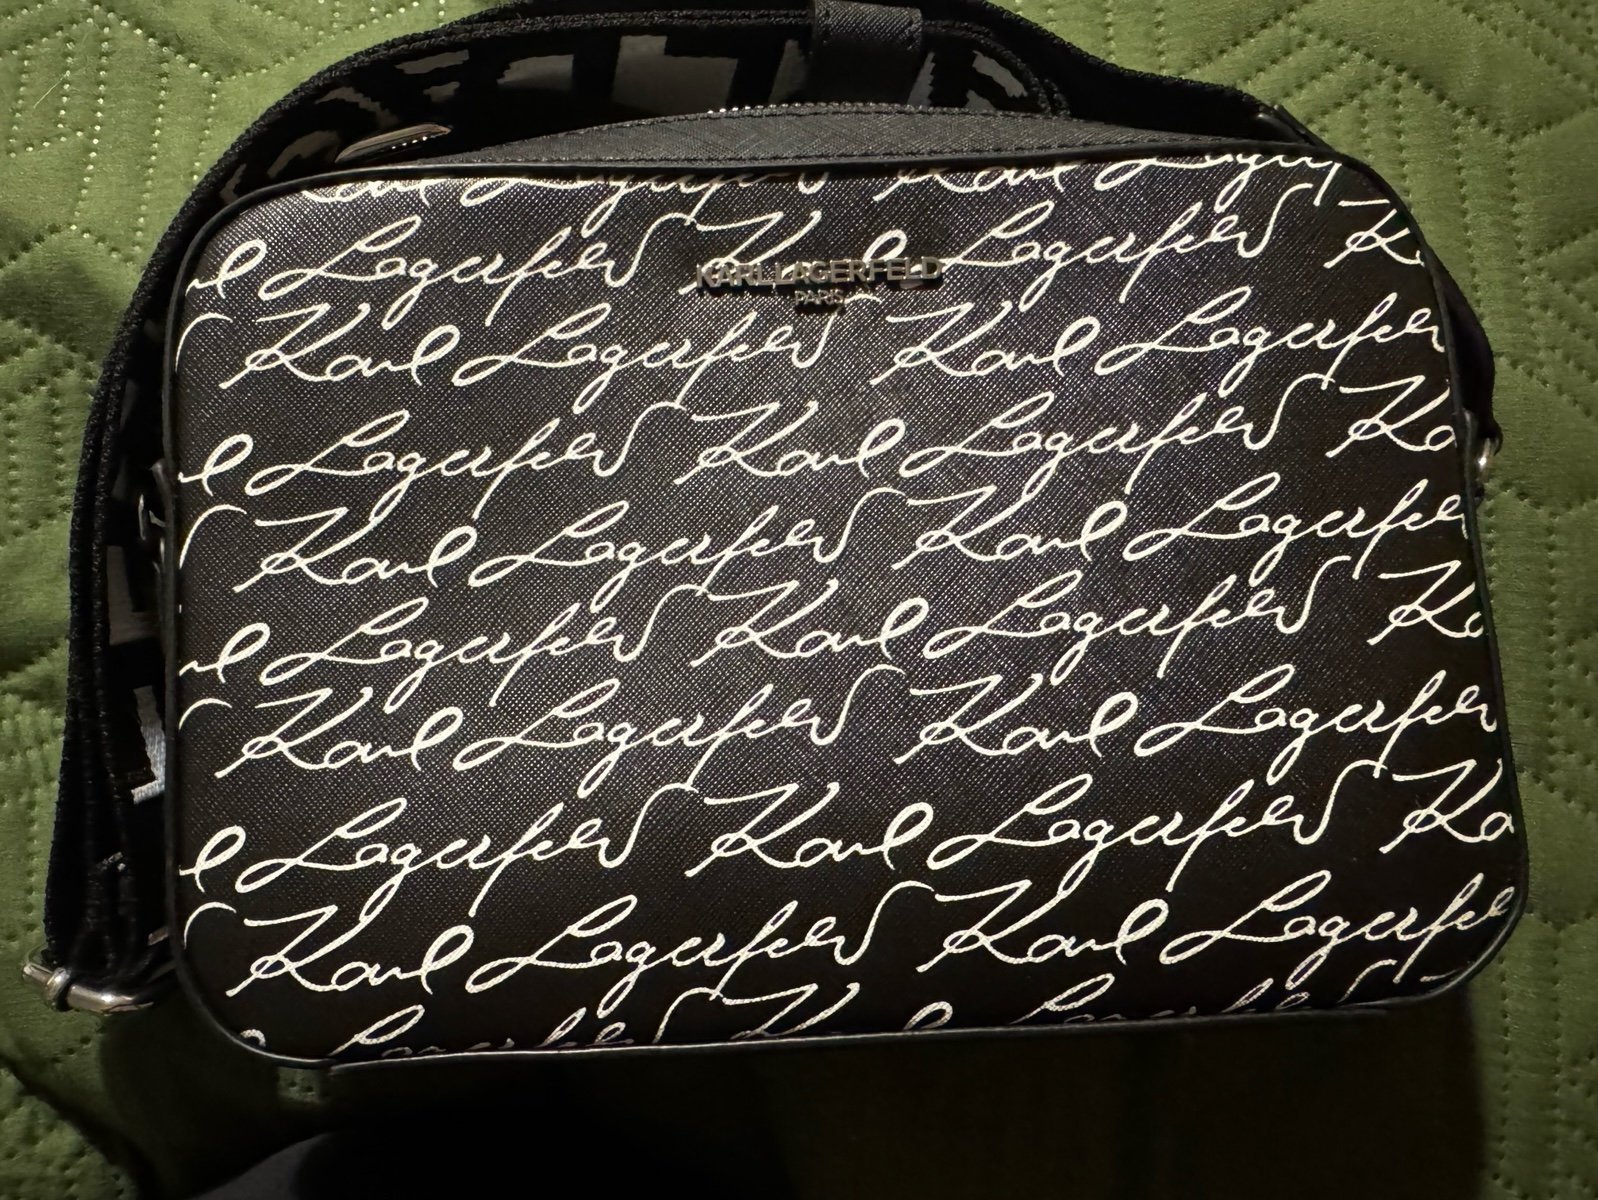 Karl Lagerfeld
Lagerfeld Karl Lagerfeld
KARL LAGERFELD
PARIS
Karl Lagerfeld Karl Lagerfeld
Lagerfeld Karl Lagerfeld
Karl Lagerfeld Karl Lagerfeld
Lagerfeld Karl Lagerfeld
Karl Lagerfeld Karl Lagerfeld
Lagerfeld Karl Lagerfeld
Karl Lagerfeld Karl Lagerfeld
Lagerfeld Karl Lagerfeld